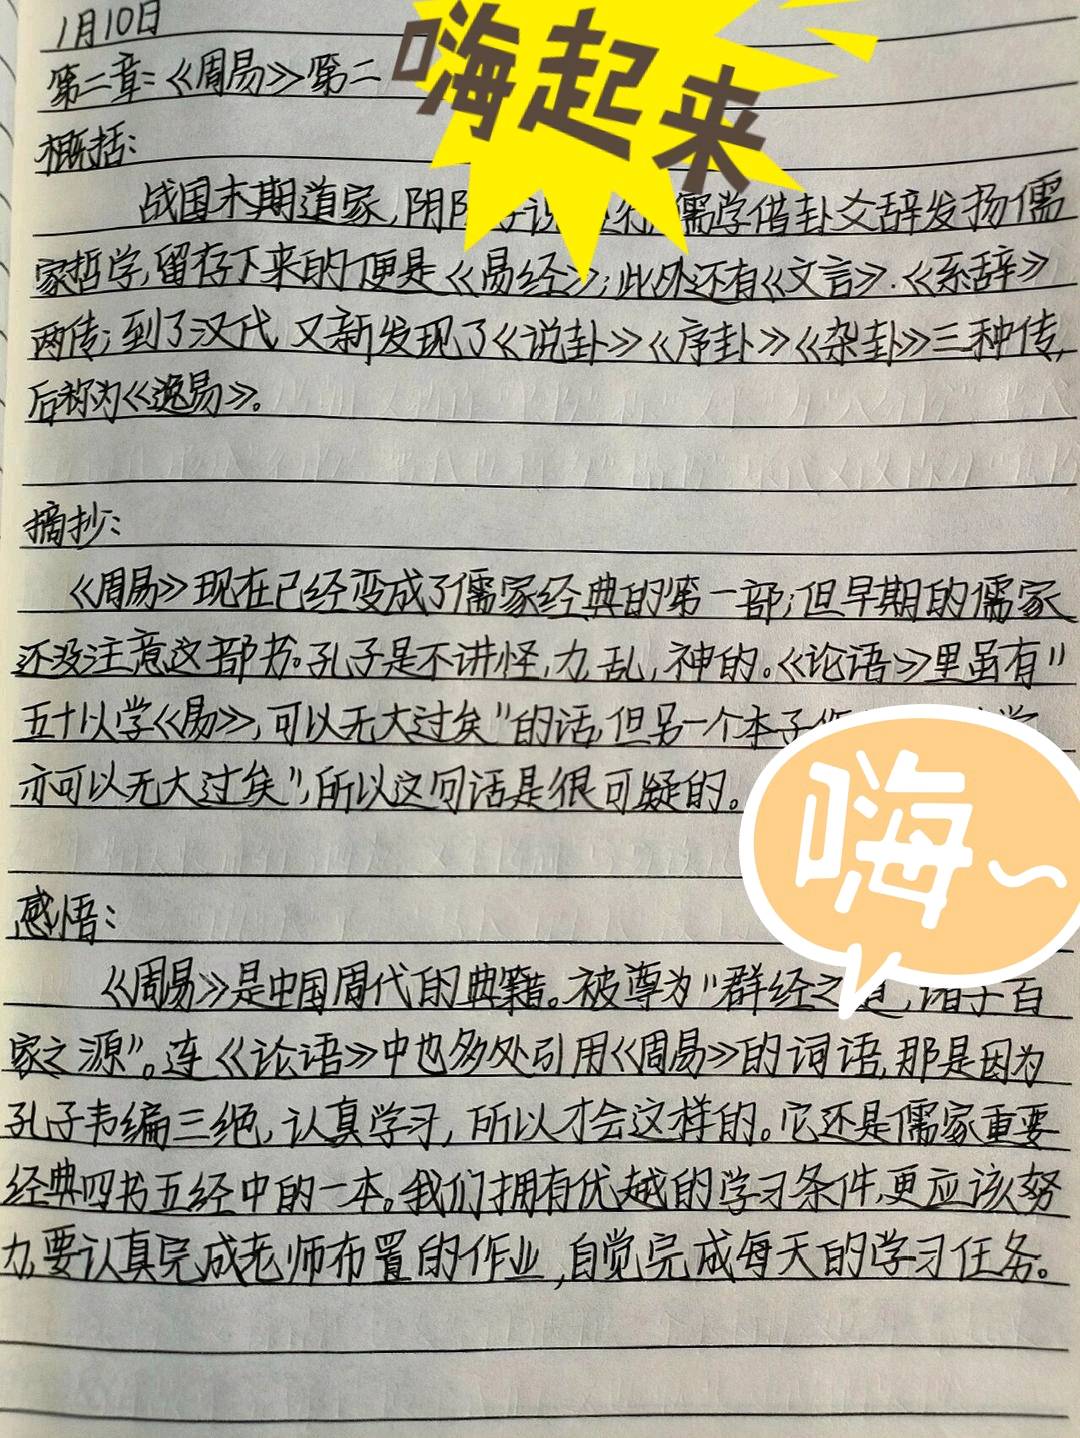 1月10日
第二章:《周易》第二
嗨起来
概括:
战国末期道家,阴 儒学借卦爻辞发扬儒
家哲学,留存下来的便是《易经》;此外还有《文言》.《系辞》
两传;到了汉代,又新发现了《说卦》《序卦》《杂卦》三种传,
后称为《逸易》。
摘抄:
《周易》现在已经变成了儒家经典的第一部;但早期的儒家
还没注意这部书。孔子是不讲怪,力,乱,神的。《论语》里虽有"
五十以学《易》,可以无大过矣"的话,但另一个本子
亦可以无大过矣",所以这句话是很可疑的。
嗨~
感悟:
《周易》是中国周代的典籍。被尊为"群经之 ,诸子百
家之源"。连《论语》中也多处引用《周易》的词语,那是因为
孔子韦编三绝,认真学习,所以才会这样的。它还是儒家重要
经典四书五经中的一本。我们拥有优越的学习条件,更应该努
力,要认真完成老师布置的作业,自觉完成每天的学习任务。